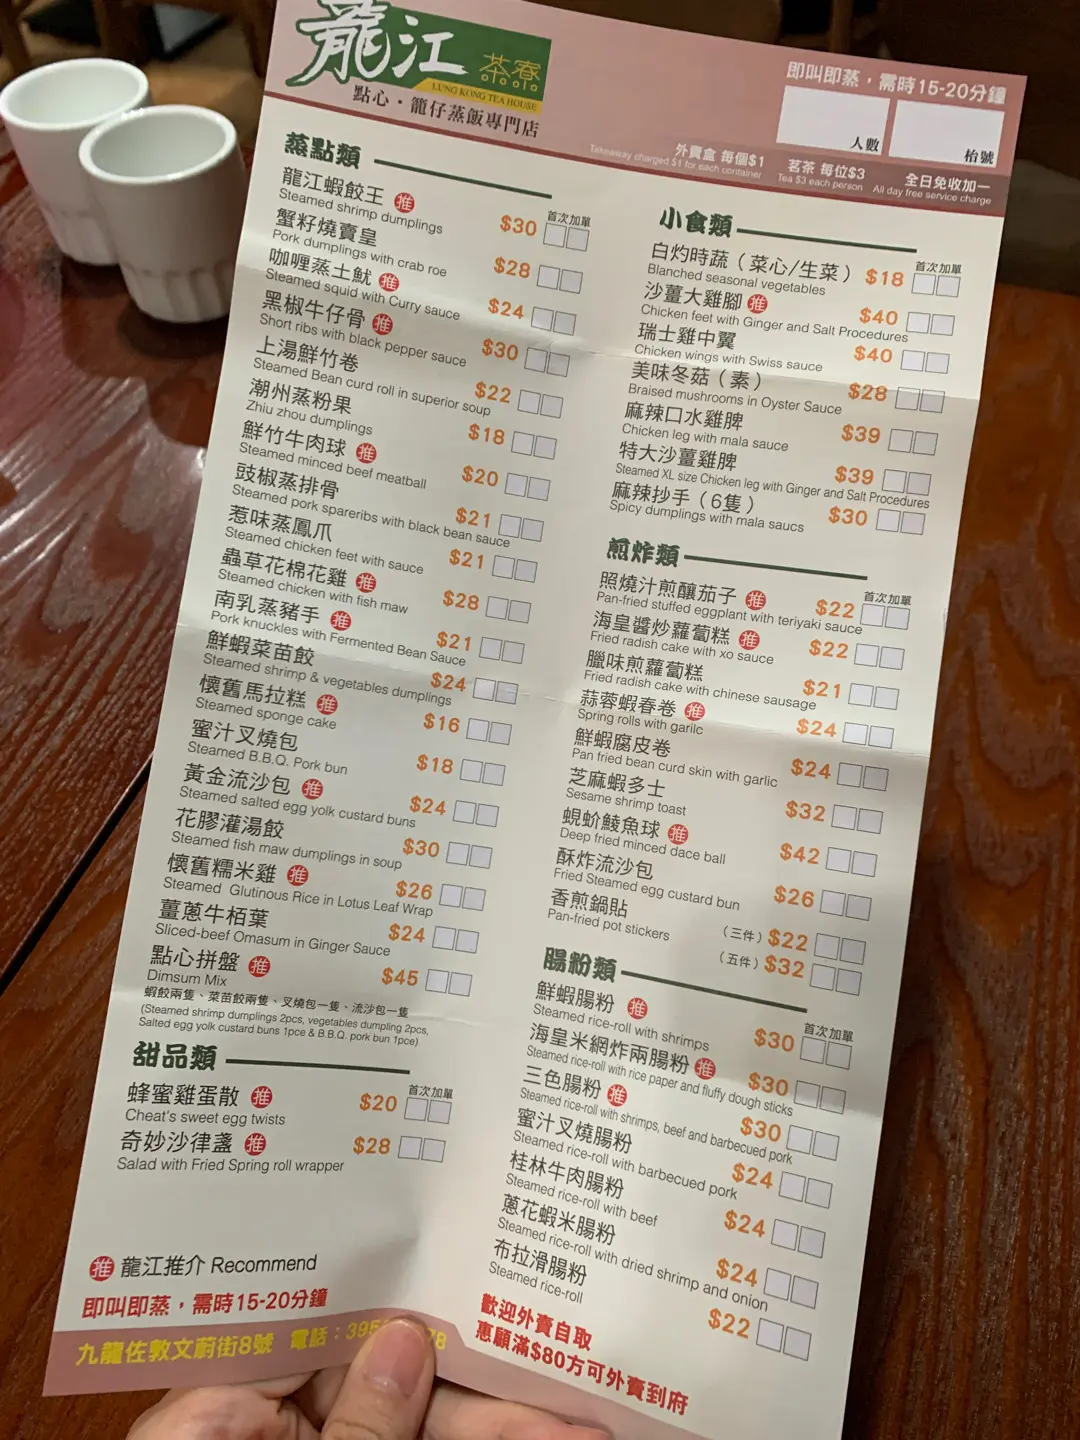 龍江
茶寮
LUNG KONG TEA HOUSE
點心・籠仔蒸飯專門店
即叫即蒸，需時15-20分鐘
人數
枱號
外賣盒 每個$1
Takeaway charged $1 for each container
茗茶 每位$3
Tea $3 each person
全日免收加一
All day free service charge
蒸點類
首次加單
龍江蝦餃王 推
Steamed shrimp dumplings
$30
蟹籽燒賣皇
Pork dumplings with crab roe
$28
咖喱蒸土魷 推
Steamed squid with Curry sauce
$24
黑椒牛仔骨 推
Short ribs with black pepper sauce
$30
上湯鮮竹卷
Steamed Bean curd roll in superior soup
$22
潮州蒸粉果
Zhiu zhou dumplings
$18
鮮竹牛肉球 推
Steamed minced beef meatball
$20
豉椒蒸排骨
Steamed pork spareribs with black bean sauce
$21
惹味蒸鳳爪
Steamed chicken feet with sauce
$21
蟲草花棉花雞 推
Steamed chicken with fish maw
$28
南乳蒸豬手 推
Pork knuckles with Fermented Bean Sauce
$21
鮮蝦菜苗餃
Steamed shrimp & vegetables dumplings
$24
懷舊馬拉糕 推
Steamed sponge cake
$16
蜜汁叉燒包
Steamed B.B.Q. Pork bun
$18
黃金流沙包 推
Steamed salted egg yolk custard buns
$24
花膠灌湯餃
Steamed fish maw dumplings in soup
$30
懷舊糯米雞 推
Steamed Glutinous Rice in Lotus Leaf Wrap
$26
薑蔥牛栢葉
Sliced-beef Omasum in Ginger Sauce
$24
點心拼盤 推
Dimsum Mix
$45
蝦餃兩隻、菜苗餃兩隻、叉燒包一隻、流沙包一隻
(Steamed shrimp dumplings 2pcs, vegetables dumpling 2pcs,
Salted egg yolk custard buns 1pce & B.B.Q. pork bun 1pce)
甜品類
首次加單
蜂蜜雞蛋散 推
Cheat's sweet egg twists
$20
奇妙沙律盞 推
Salad with Fried Spring roll wrapper
$28
推 龍江推介 Recommend
即叫即蒸，需時15-20分鐘
九龍佐敦文蔚街8號 電話：395 78
小食類
首次加單
白灼時蔬（菜心/生菜）
Blanched seasonal vegetables
$18
沙薑大雞腳 推
Chicken feet with Ginger and Salt Procedures
$40
瑞士雞中翼
Chicken wings with Swiss sauce
$40
美味冬菇（素）
Braised mushrooms in Oyster Sauce
$28
麻辣口水雞脾
Chicken leg with mala sauce
$39
特大沙薑雞脾
Steamed XL size Chicken leg with Ginger and Salt Procedures
$39
麻辣抄手（6隻）
Spicy dumplings with mala saucs
$30
煎炸類
首次加單
照燒汁煎釀茄子 推
Pan-fried stuffed eggplant with teriyaki sauce
$22
海皇醬炒蘿蔔糕 推
Fried radish cake with xo sauce
$22
臘味煎蘿蔔糕
Fried radish cake with chinese sausage
$21
蒜蓉蝦春卷 推
Spring rolls with garlic
$24
鮮蝦腐皮卷
Pan fried bean curd skin with garlic
$24
芝麻蝦多士
Sesame shrimp toast
$32
蜆蚧鯪魚球 推
Deep fried minced dace ball
$42
酥炸流沙包
Fried Steamed egg custard bun
$26
香煎鍋貼
Pan-fried pot stickers
（三件）$22
（五件）$32
腸粉類
首次加單
鮮蝦腸粉 推
Steamed rice-roll with shrimps
$30
海皇米網炸兩腸粉 推
Steamed rice-roll with rice paper and fluffy dough sticks
$30
三色腸粉 推
Steamed rice-roll with shrimps, beef and barbecued pork
$30
蜜汁叉燒腸粉
Steamed rice-roll with barbecued pork
$24
桂林牛肉腸粉
Steamed rice-roll with beef
$24
蔥花蝦米腸粉
Steamed rice-roll with dried shrimp and onion
$24
布拉滑腸粉
Steamed rice-roll
$22
歡迎外賣自取
惠顧滿$80方可外賣到府